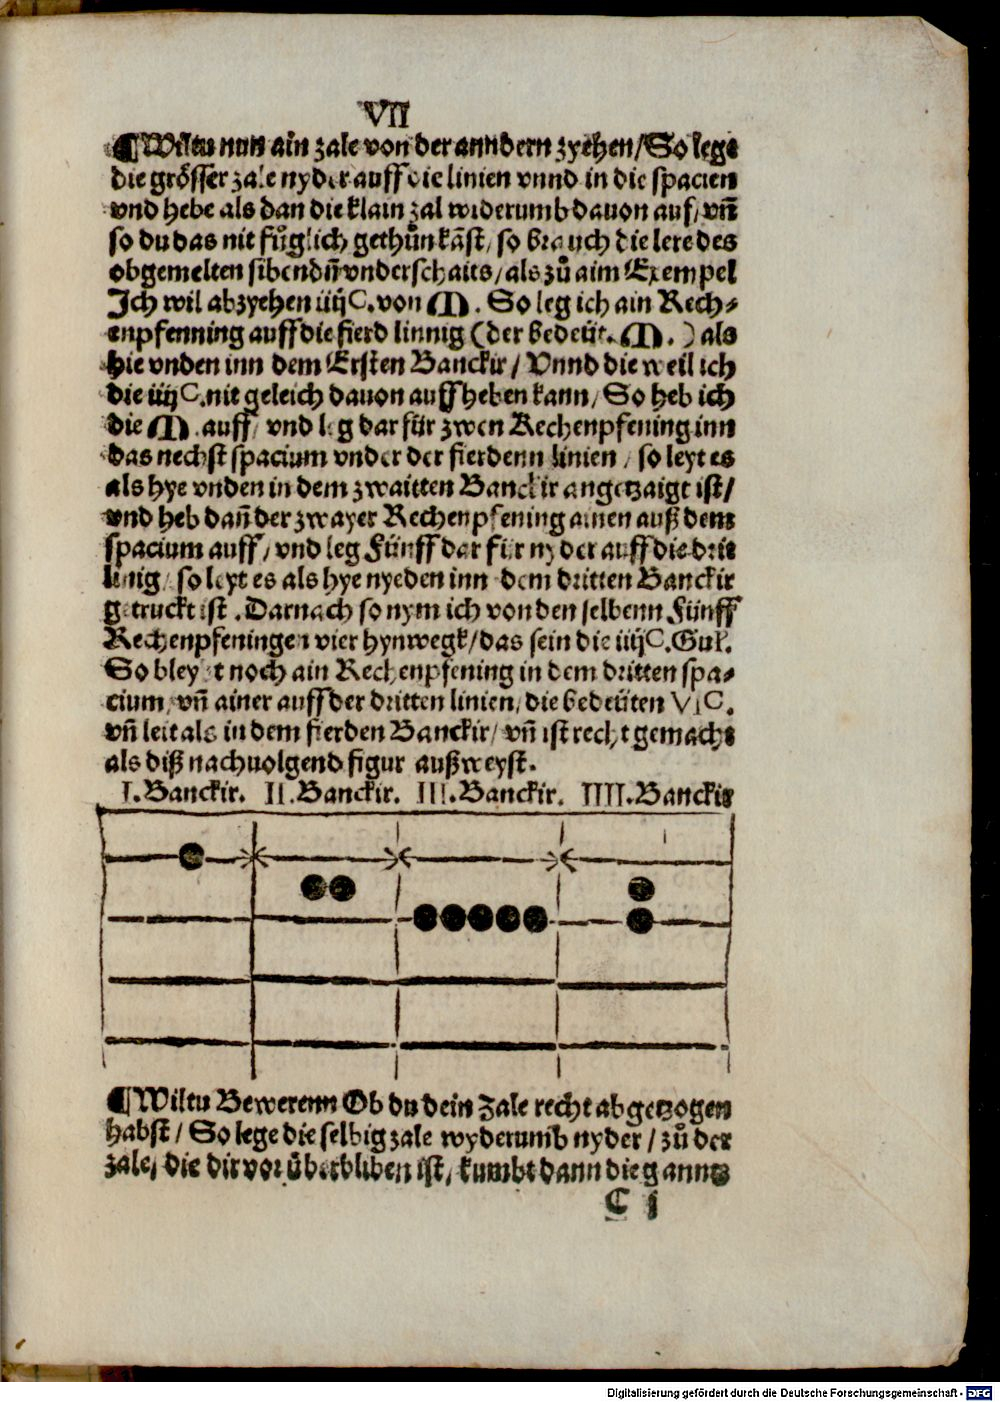 VII
¶ Wiltu nun ain zale von der anndern zyehen/ So lege
die grösser zale nyder auff die linien vnnd in die spacien
vnd hebe als dan die klain zal widerumb dauon auf/ vn̄
so du das nit fůglich gethůn kāst/ so brauch die lere des
obgemelten sibendn̄ vnderschaits/ als zů aim Exempel
Ich wil abzyehen iiijC. von M. So leg ich ain Rech⸗
enpfenning auff die fierd linnig (der bedeüt. M.) als
hie vnden inn dem Ersten Banckir/ Vnnd die weil ich
die iiijC. nit geleich dauon auff heben kann/ So heb ich
die M. auff/ vnd leg dar für zwen Rechenpfening inn
das nechst spacium vnder der fierdenn linien/ so leyt es
als hye vnden in dem zwaitten Banckir angetzaigt ist/
vnd heb dan̄ der zwayer Rechenpfening ainen auß dem
spacium auff/ vnd leg Fünff dar für nyder auff die drit
linig/ so leyt es als hye nyeden inn dem dritten Banckir
getruckt ist. Darnach so nym ich von den selbenn Fünff
Rechenpfeningen vier hynwegk/ das sein die iiijC. Gul.
So bleybt noch ain Rechenpfening in dem dritten spa⸗
cium/ vn̄ ainer auff der dritten linien/ die bedeüten VIC.
vn̄ leit als in dem fierden Banckir/ vn̄ ist recht gemacht
als diß nachuolgend figur außweyst.
I. Banckir. II. Banckir. III. Banckir. IIII. Banckir
¶ Wiltu Bewerenn Ob du dein Zale recht abgetzogen
habst/ So lege die selbig zale wyderumb nyder/ zů der
zale/ die dir vor überbliben ist/ kumbt dann die ganntz
C i
Digitalisierung gefördert durch die Deutsche Forschungsgemeinschaft - DFG